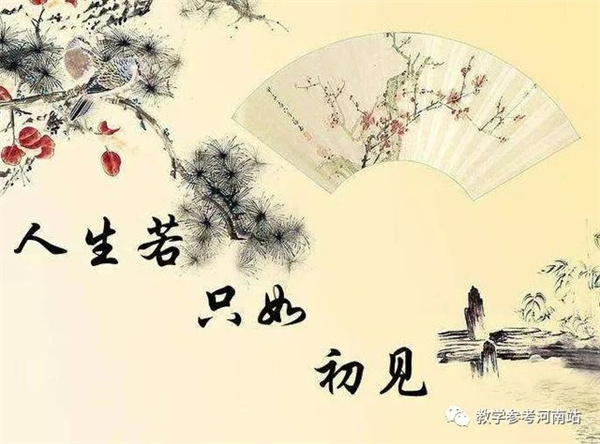 人生若
只如
初见
教学参考河南站